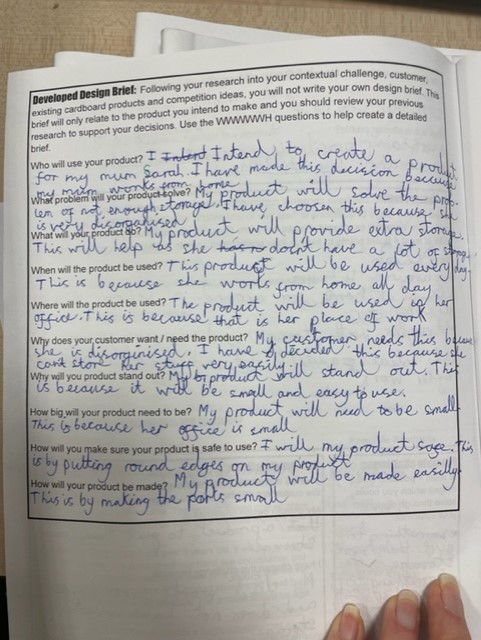 Developed Design Brief: Following your research into your contextual challenge, customer,
existing cardboard products and competition ideas, you will not write your own design brief. This
brief will only relate to the product you intend to make and you should review your previous
research to support your decisions. Use the WWWWWH questions to help create a detailed
brief.
Who will use your product? I Intent Intend to create a product
for my mum Sarah. I have made this decision because
my mum works from home
What problem will your product solve? My product will solve the prob-
lem of not enough storage. I have choosen this because she
is very disorganised
What will your product do? My product will provide extra storage.
This will help as she doesn't have a lot of storage.
When will the product be used? This product will be used every day.
This is because she works from home all day
Where will the product be used? The product will be used in her
office. This is because that is her place of work
Why does your customer want / need the product? My customer needs this because
she is disorginised. I have decided this because she
cant store her stuff very easily.
Why will you product stand out? My product will stand out. This
is because it will be small and easy to use.
How big will your product need to be? My product will need to be small.
This is because her office is small
How will you make sure your product is safe to use? I will my product safe. This
is by putting round edges on my product
How will your product be made? My product will be made easilly.
This is by making the parts small